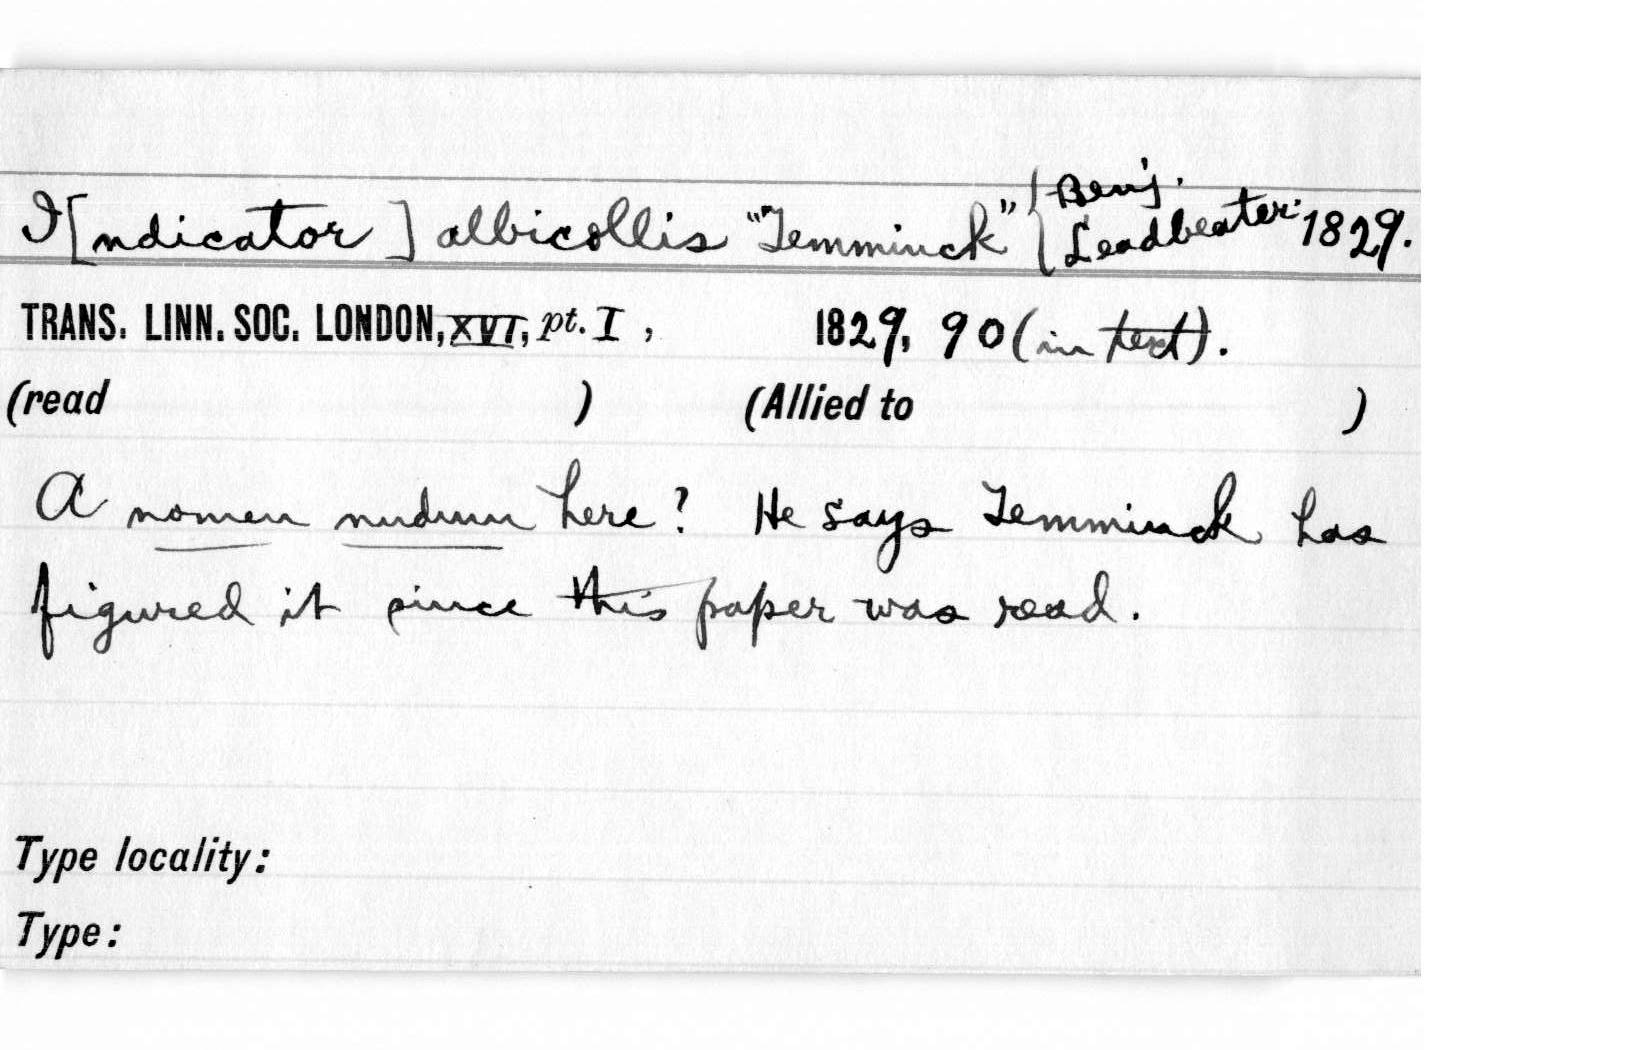 I[ndicator] albicollis "Temminck" { Benj. Leadbeater 1829.
TRANS. LINN. SOC. LONDON, XVI, pt. I, 1829, 90 (in text).
(read ) (Allied to )
A nomen nudum here? He says Temminck has
figured it since this paper was read.
Type locality:
Type: